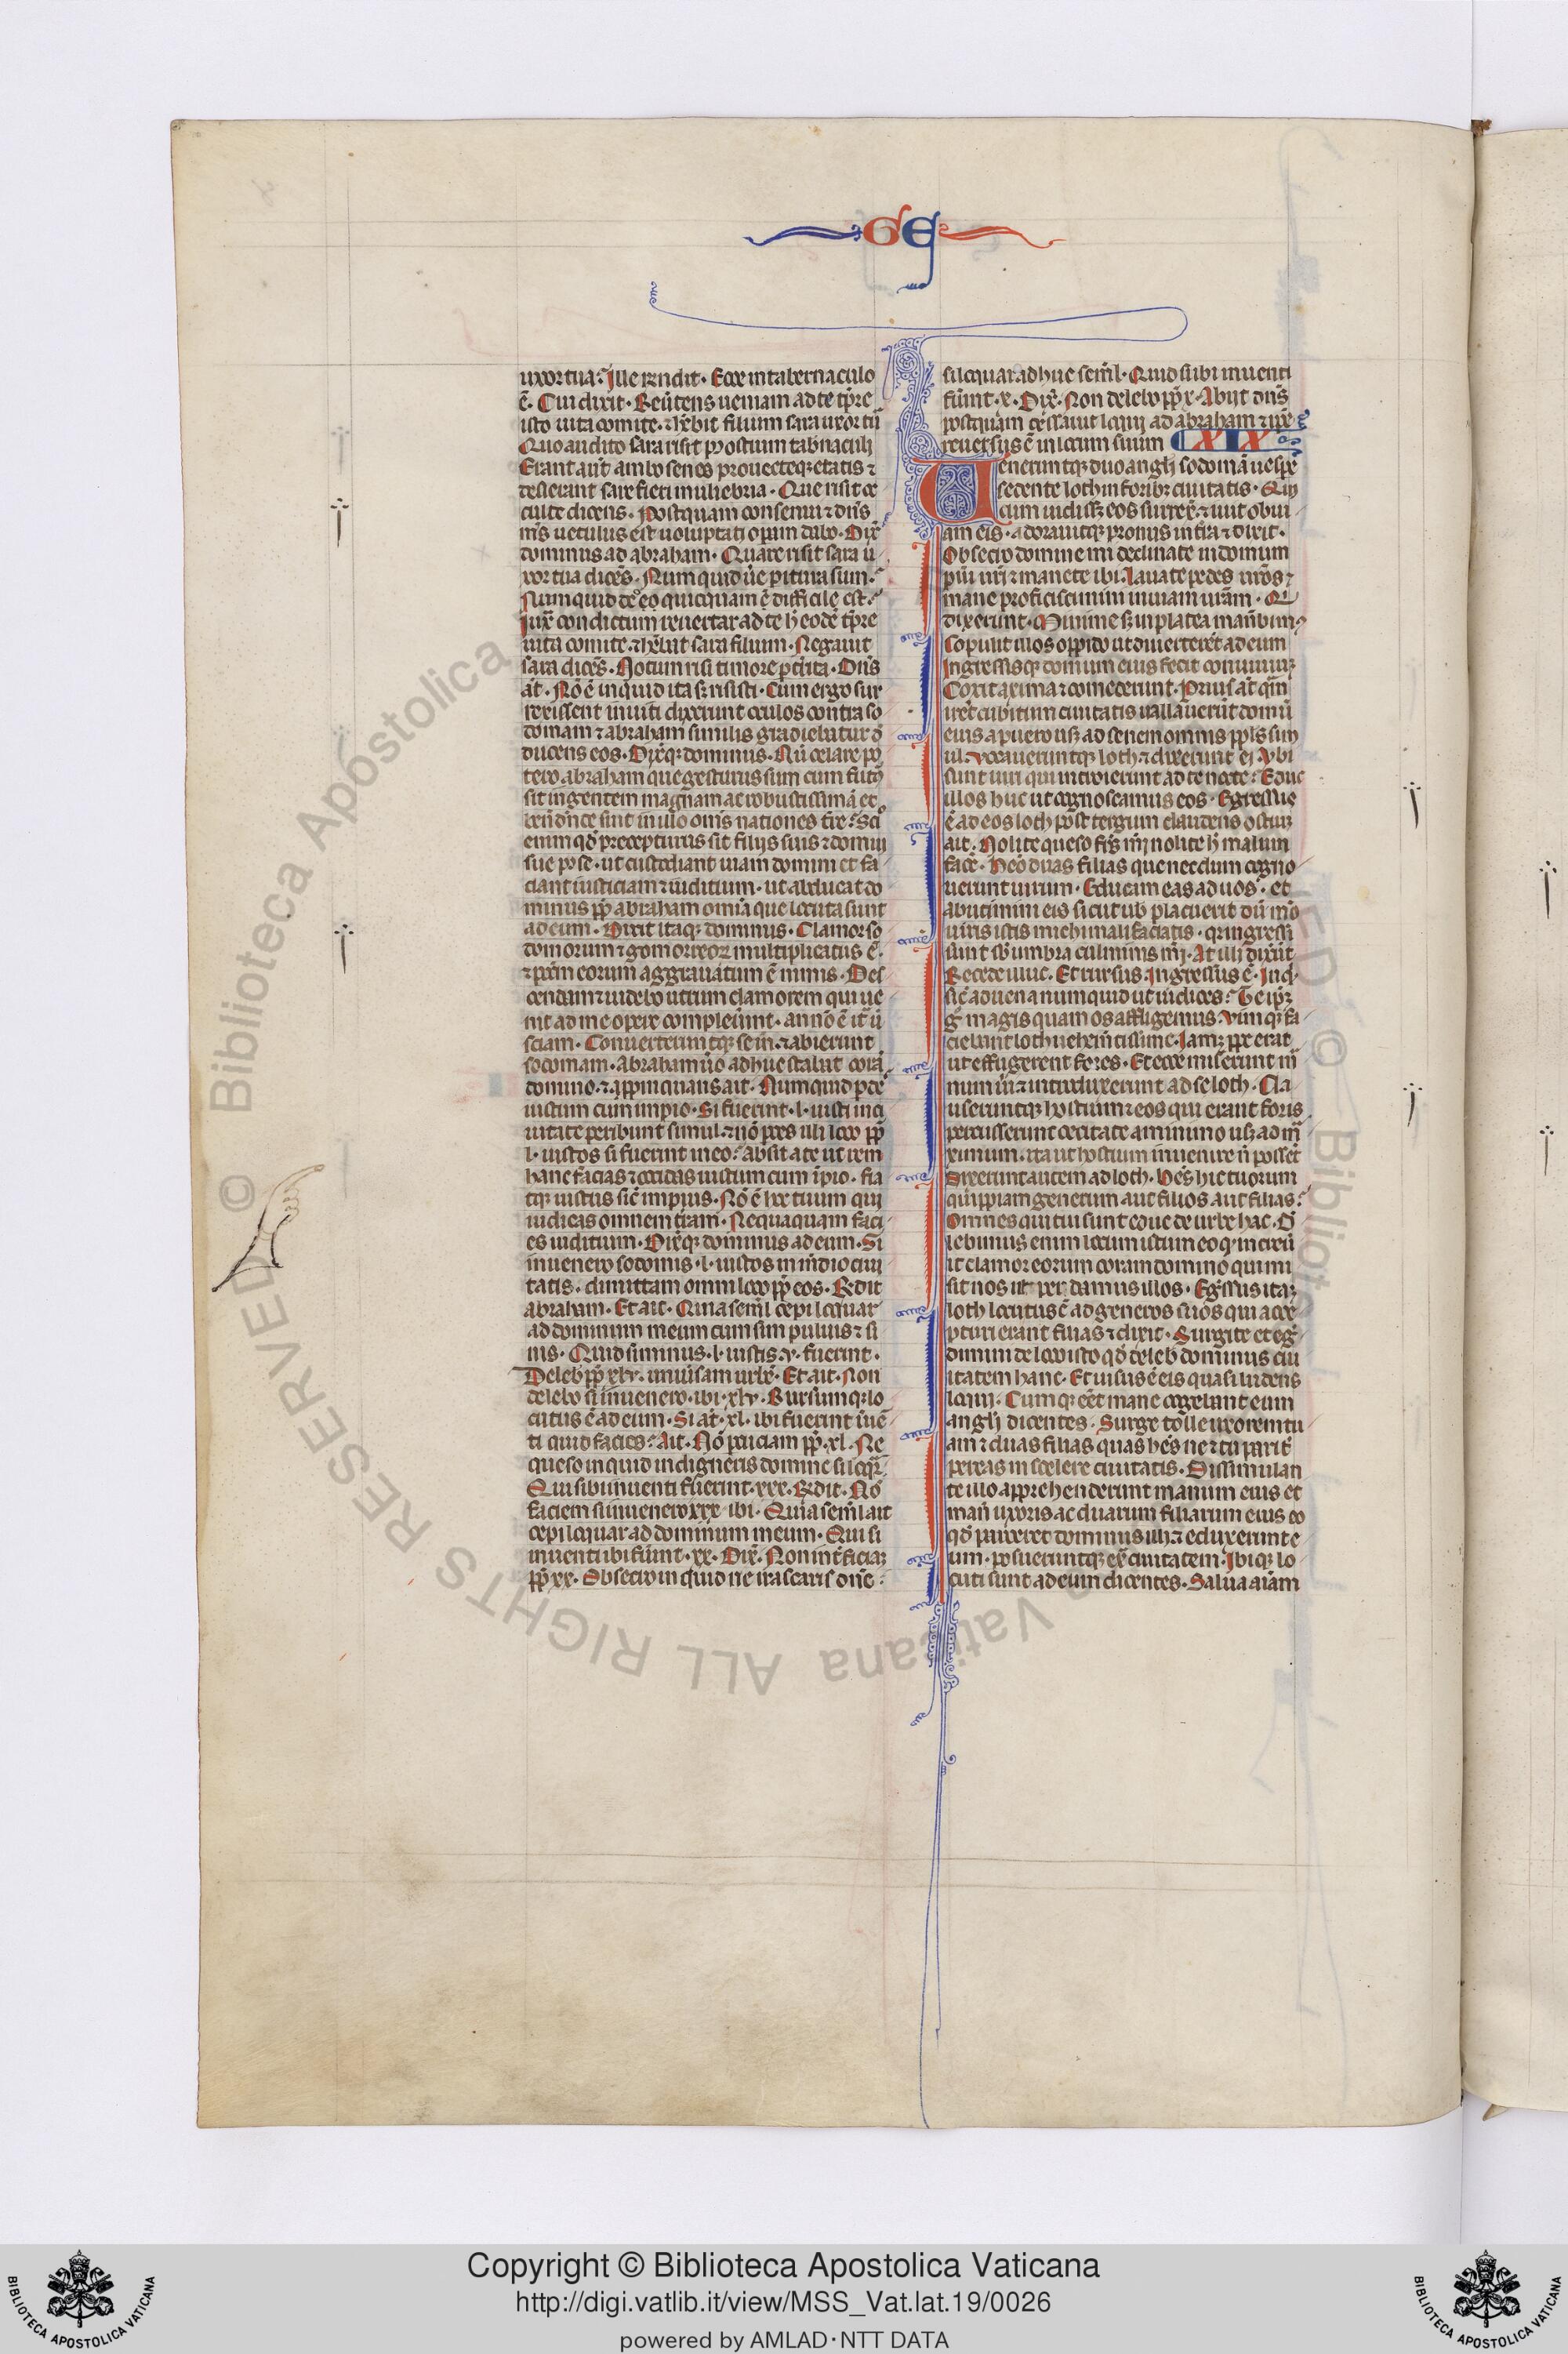 GE
uxor tua. Ille rñdit. Ecce in tabernaculo
ē. Cui dixit. Reũtens ueniam ad te tp̄re
isto uita comite. ⁊ hēbit filium sara uxor tū
Quo audito sara risit p⁹ ostium tab̃naculi
Erant aũt ambo senes prouecteq; etatis ⁊
desierant sare fieri muliebria. Que risit oc
culte dicens. Postquam consenui ⁊ dñs
m̃s uetulus est uoluptati operam dabo. Dix̃
dominus ad abraham. Quare risit sara u
xor tua dicẽs. Num quid ũe paritura sum.
Numquid deo quicquam ē difficile est.
Iux̃ condictum reuertar ad te h̃ eodē tp̃re
uita comite. ⁊ hẽbit sara filium. Negauit
sara dicẽs. Nō tum risi timore p̱trita. Dñs
āt. Nō ē inquid ita s; risisti. Cum ergo sur
rexissent inuiti dixerunt oculos contra so
domam ⁊ abraham similis gradiebatur d̃
ducens eos. Dix̃q; dominus. Nū celare po
tero abraham que gesturus sum cum futur̃
sit in gentem magnam ac robustissimā et
ben̄dñde sint in illo om̃s nationes tr̃e. Sci
enim qđ precepturus sit filijs suis ⁊ domui
sue po se. ut custodiant uiam domini et fa
ciant iusticiam ⁊ iuditium. ut adducat do
minus pp̃ abraham omĩa que locuta sunt
ad eum. Dixit itaq; dominus. Clamor so
domorum ⁊ gomorreor; multiplicatus ē.
⁊ pc̃m eorum aggrauatum ē nimis. Des
cendam ⁊ uidebo utrum clamorem qui ue
nit ad me opere compleũint. an nō ē ita ũ
sciam. Conuerterunt q; se iñ. ⁊ abierunt
sodomam. Abraham ũo adhuc stabat corā
domino. ⁊ app̱inquans ait. Numquid p̱de
iustum cum impio. Si fuerint .l. iusti in ci
uitate peribunt simul. ⁊ nō p̱ces illi loco pp̃
.l. iustos si fuerint in eo. absit a te ut rem
hanc facias ⁊ occidas iustum cum ĩpio. fia
tq; iustus sic̃ impius. Nō ē hoc tuum qui
iudicas omnem tr̃am. Nequaquam faci
es iuditium. Dix̃q; dominus ad eum. Si
inuenero sodomis .l. iustos in m̃dio ciui
tatis. dimittam omni loco pp̃ eos. R̃dit
abraham. Et ait. Quia sem̃l cepi loquar
ad dominum meum cum sim puluis ⁊ ci
nis. Quid si minus .l. iustis .v. fuerint.
Deleb̃ pp̃ xlv. uniũsam urbē. Et ait. Non
delebo si inuenero ibi .xlv. Rursumq; lo
cutus ē ad eum. Si āt .xl. ibi fuerint ĩuē
ti quid facies. Ait. Nō p̱cuciam pp̃ .xl. Ne
queso inquid indigneris domine si loq̃r.
Qui si ibi inuenti fuerint .xxx. R̃dit. Nō
faciem si inuenero xxx ibi. Quia sem̃l ait
cepi loquar ad dominum meum. Qui si
inuenti ibi fũint .xx. Dix̃. Non int̃ficiaz
pp̃ xx. Obsecro inquid ne irascaris dñe
si loquar adhuc sem̃l. Quid si ibi inuenti
fũint .x. Dix̃. Non delebo pp̃ x. Abijt dñs
postquam cessauit loqui ad abraham ⁊ ip̃e
reuersus ē in locum suum XIX
Uenerunt q; duo angli sodomā uesp̱e
sedente loth in foribz ciuitatis. Qui
cum uidiss; eos surrex̃. ⁊ iuit obui
am eis. adorauitq; pronus in tr̃a ⁊ dixit.
Obsecro domine mi declinate in domum
puĩ ur̃i ⁊ manete ibi. Lauate pedes ur̃os ⁊
mane proficiscimini in uiam ur̃am. Q
dixerunt. Minime s; in platea manẽbim⁹
Copulit illos oppido ut diuerterēt ad eum
Ingressisq; domum eius fecit conuiuiuz
Coxit azima ⁊ comederunt. Prius āt q̃m
irēt cubitum ciuitatis uallauerūt domū
eius a puero us; ad senem omnis ppl̃s sim
ul. vocauerunt q; loth ⁊ dixerunt ei. Vbi
sunt uiri qui introierunt ad te nocte. Educ
illos huc ut cognoscamus eos. Egressus
ē ad eos loth post tergum claudens ostiuz
ait. Nolite queso fr̃s m̃i nolite h̃ malum
facẽ. Hēo duas filias que necdum cogno
uerunt uirum. Educam eas ad uos. et
abutimini eis sicut uob̃ placuerit dū mõ
uiris istis nichil mali faciatis. q; ingressi
sunt sb̃ umbra culminis m̃i. At illi dixūt
Recede illuc. Et rursus. Ingressus ē. Inq̃.
sic̃ aduena numquid ut iudices. Te ip̃z
g̃ magis quam os affligemus. Vim q; fa
ciebant loth uehem̃tissime. Iamz p̱pe erat
ut effugerent fores. Et ecce miserunt m̃
num uiri ⁊ introduxerunt ad se loth. Cla
userunt q; hostium ⁊ eos qui erant foris
percusserunt cecitate a minimo us; ad m̃
ximum. ita ut hostium inuenire ñ possēt
Dixerunt autem ad loth. Hẽs hic tuorum
quippiam generum aut filios aut filias.
Omnes qui tui sunt educ de urbe hac. D̃
lebimus enim locum istum eo q; increũ
it clamor eorum coram domino qui mi
sit nos ut perdamus illos. Egr̃ssus itaz
loth locutus ē ad generos suos qui acce
pturi erant filias ⁊ dixit. Surgite et eg̃
dimini de loco isto qđ deleb̃ dominus ciu
itatem hanc. Et uisus ē eis quasi ludens
loqui. Cum q; eēt mane cogebant eum
angli dicentes. Surge tolle uxorem tu
am ⁊ duas filias quas hẽs ne ⁊ tu parit̃
pereas in scelere ciuitatis. Dissimulan
te illo apprehenderunt manum eius et
manũ uxoris ac duarum filiarum eius eo
qđ parceret dominus illi. ⁊ eduxerunt e
um. posuerunt q; ex̃ ciuitatem. Ibiq; lo
cuti sunt ad eum dicentes. Salua aĩam
Copyright © Biblioteca Apostolica Vaticana
http://digi.vatlib.it/view/MSS_Vat.lat.19/0026
powered by AMLAD·NTT DATA
BIBLIOTECA APOSTOLICA VATICANA
BIBLIOTECA APOSTOLICA VATICANA
© Biblioteca Apostolica Vaticana ALL RIGHTS RESERVED